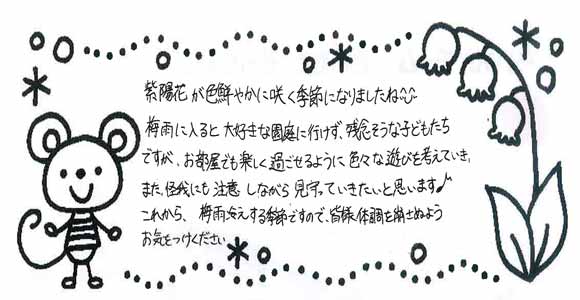 紫陽花が色鮮やかに咲く季節になりましたね
梅雨に入ると大好きな園庭に行けず、残念そうな子どもたち
ですが、お部屋でも楽しく過ごせるように色々な遊びを考えていき、
また、怪我にも注意しながら見守っていきたいと思います♪
これから、梅雨冷えする季節ですので、皆様、体調を崩さぬよう
お気をつけください